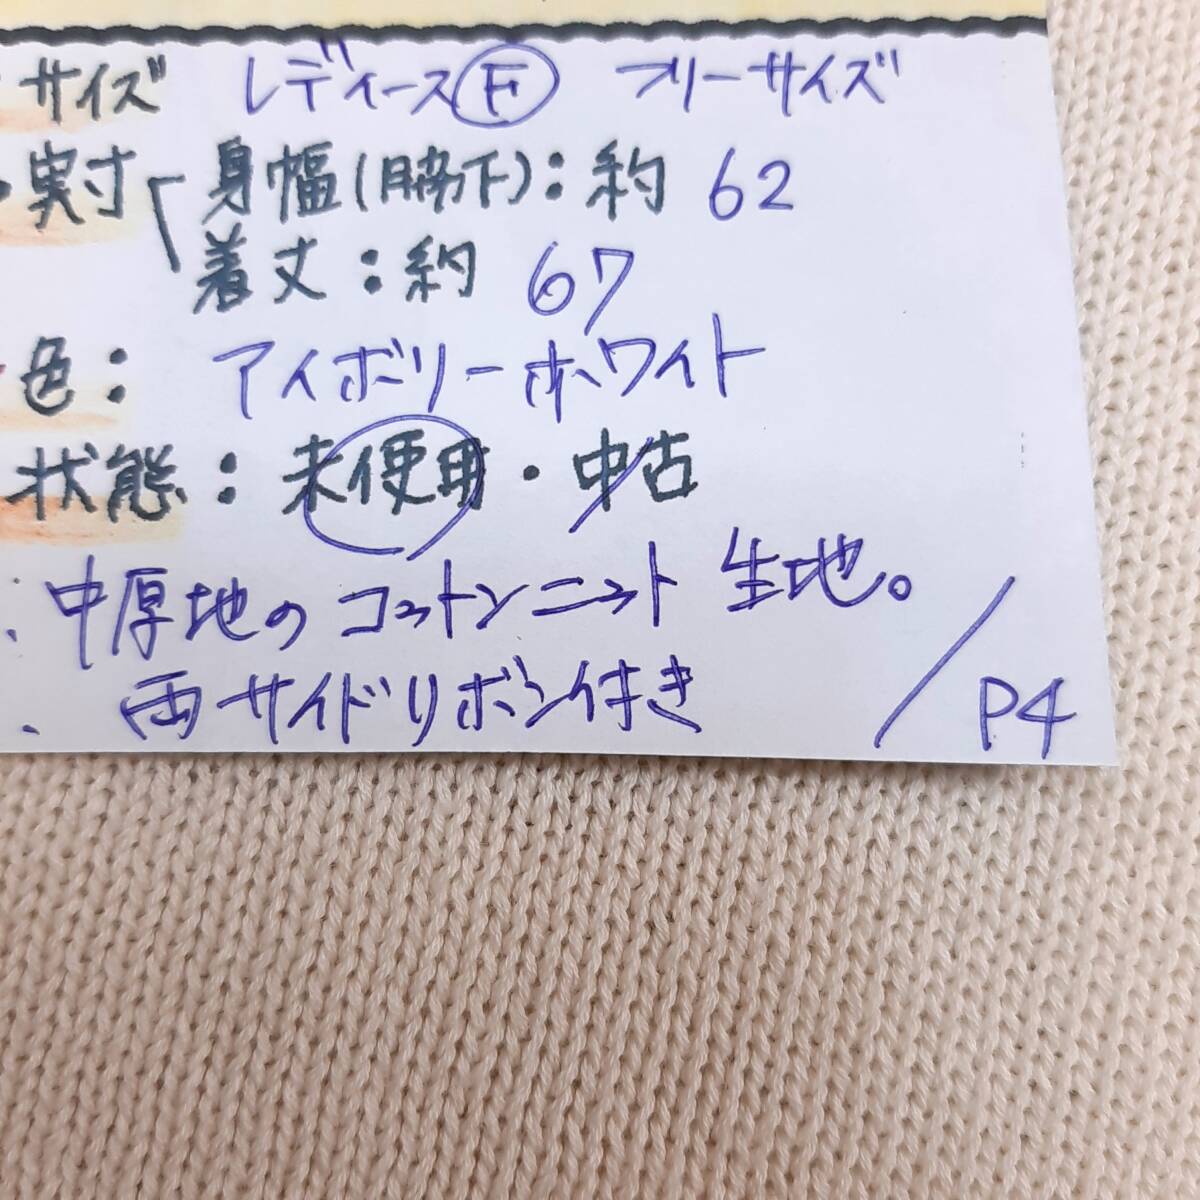 サイズ レディースⒻ フリーサイズ
実寸 身幅(脇下):約 62
着丈:約 67
色: アイボリーホワイト
状態:未使用・中古
、中厚地のコットンニット 生地。
、両サイドリボン付き / P4